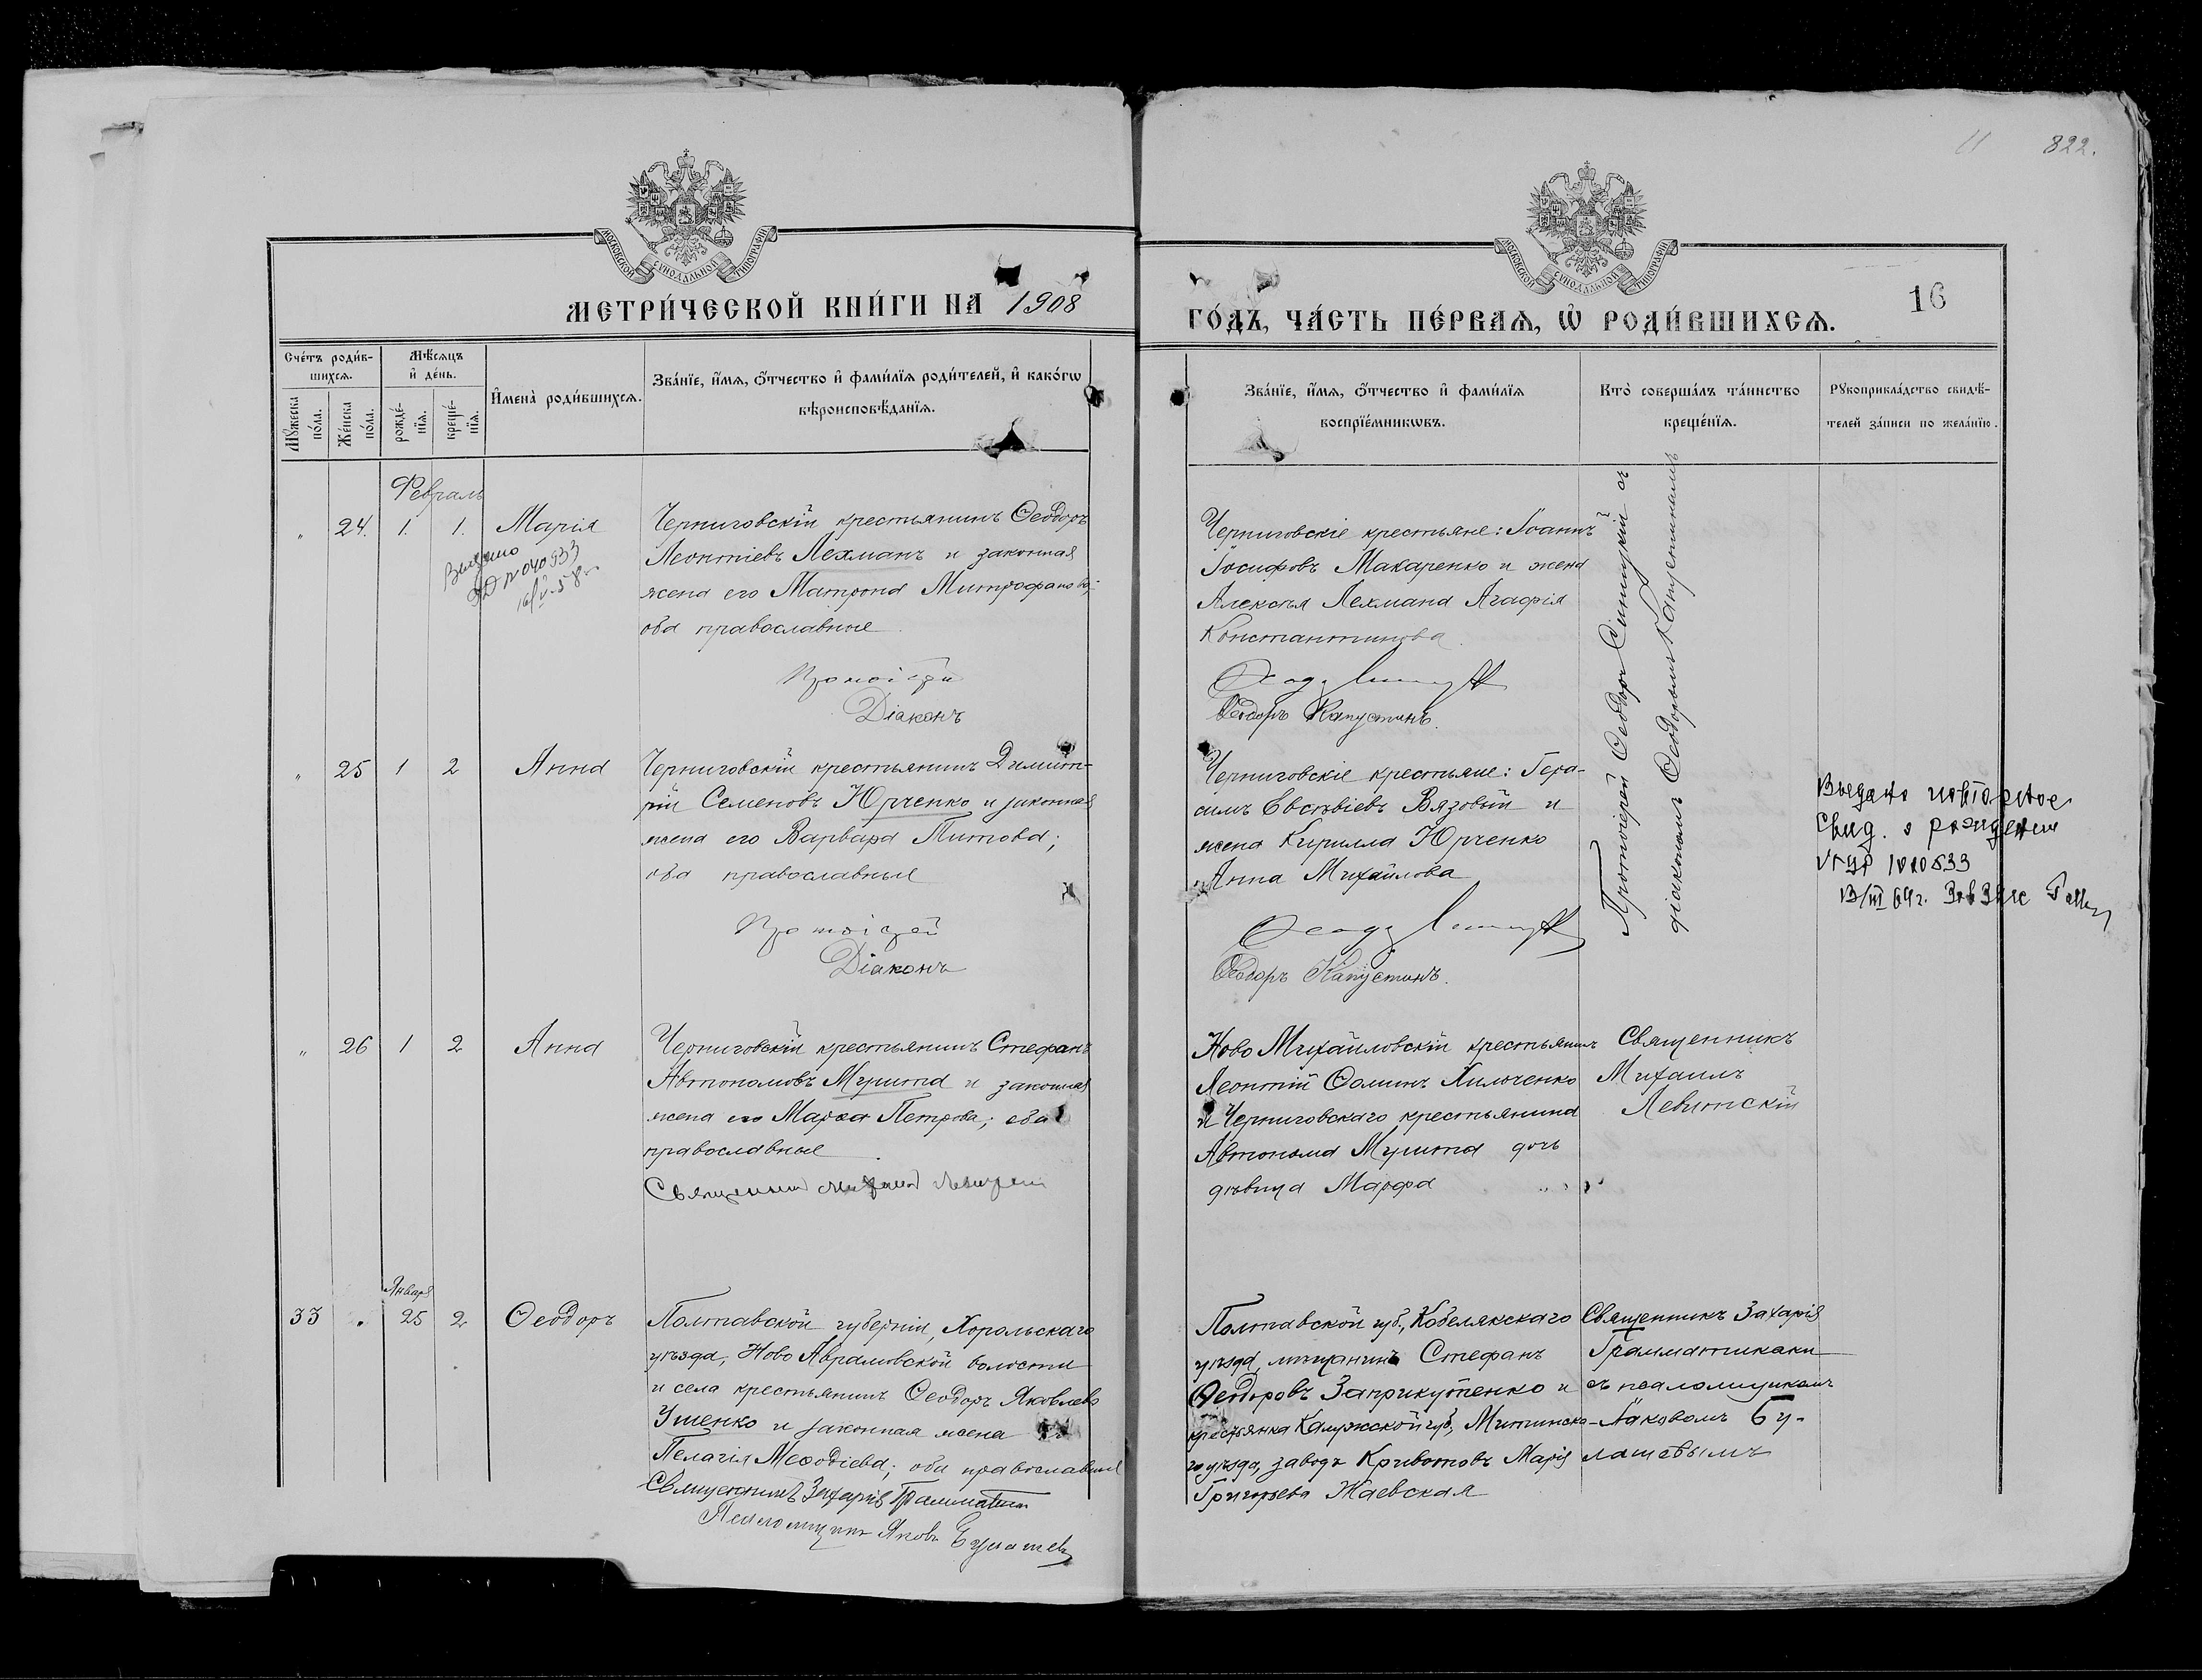 11 822.
МОСКОВСКОЙ СѴНОДАЛЬНОЙ ТИПОГРАФІИ
МОСКОВСКОЙ СѴНОДАЛЬНОЙ ТИПОГРАФІИ
МЕТРИ́ЧЕСКОЙ КНИ́ГИ НА 1908
ГО́ДЪ, ЧА́СТЬ ПЕ́РВАѦ, Ѡ РОДИ́ВШИХСѦ.
16
Сче́тъ роди́в-
шихсѧ.
Мꙋжеска по́ла.
Же́нска по́ла.
Мѣ́сѧцъ
и҆ де́нь.
рожде́-
нїѧ.
креще́-
нїѧ.
И҆мена̀ роди́вшихсѧ.
Зва́нїе, и҆́мѧ, ѻ҆́тчество и҆ фами́лїѧ роди́телей, и҆ како́гѡ
вѣроисповѣ́данїѧ.
Зва́нїе, и҆́мѧ, ѻ҆́тчество и҆ фами́лїѧ
воспрїе́мникѡвъ.
Кто̀ соверша́лъ та́инство
креще́нїѧ.
Рꙋкоприкла́дство свидѣ́-
телей за́писи по жела́нїю.
Февраль
„ 24. 1. 1. Марія
Выдано
№ 040933
Черниговскій крестьянинъ Ѳеодоръ
Леонтіевъ Лехманъ и законная
жена его Матрона Митрофанова;
оба православные
Протоіерей
Діаконъ
Черниговскіе крестьяне: Іоаннъ
Іосифовъ Макаренко и жена
Алексѣя Лехмана Агафія
Константинова.
Ѳеодоръ Капустинъ.
Протоіерей Ѳеодоръ Синицкій съ
діакономъ Ѳеодоромъ Капустинымъ
„ 25 1 2 Анна
Черниговскій крестьянинъ Димит-
рій Семеновъ Юрченко и законная
жена его Варвара Титова;
оба православные
Протоіерей
Діаконъ
Черниговскіе крестьяне: Гера-
симъ Евсѣвіевъ Вязовый и
жена Кирилла Юрченко
Анна Михайлова
Ѳеодоръ Капустинъ.
Выдано повторное
Свид. о рождении
13/III 64г.
„ 26 1 2 Анна
Черниговскій крестьянинъ Стефанъ
Автономовъ Мушта и законная
жена его Марѳа Петрова; оба
православные
Священникъ Михаилъ Левитскій
Ново Михайловскій крестьянинъ
Леонтій Ѳоминъ Хильченко
и Черниговскаго крестьянина
Автонома Мушта дочь
дѣвица Марфа
Священникъ
Михаилъ
Левитскій
Января
33 „ 25 2 Ѳеодоръ
Полтавской губерніи, Хорольскаго
уѣзда, Ново Аврамовской волости
и села крестьянинъ Ѳеодоръ Яковлевъ
Ушенко и законная жена
Пелагія Меѳодіева; оба православные
Священникъ Захарія Грамматикаки
Псаломщикъ Яковъ Булашевъ
Полтавской губ., Кобелякскаго
уѣзда, мѣщанинъ Стефанъ
Ѳеодоровъ Заприкутенко и
крестьянка Калужской губ.,
го уѣзда, заводъ Марія
Григорьева Жаевская
Священникъ Захарія
Грамматикаки
съ псаломщикомъ
Іаковомъ Бу-
лашевымъ